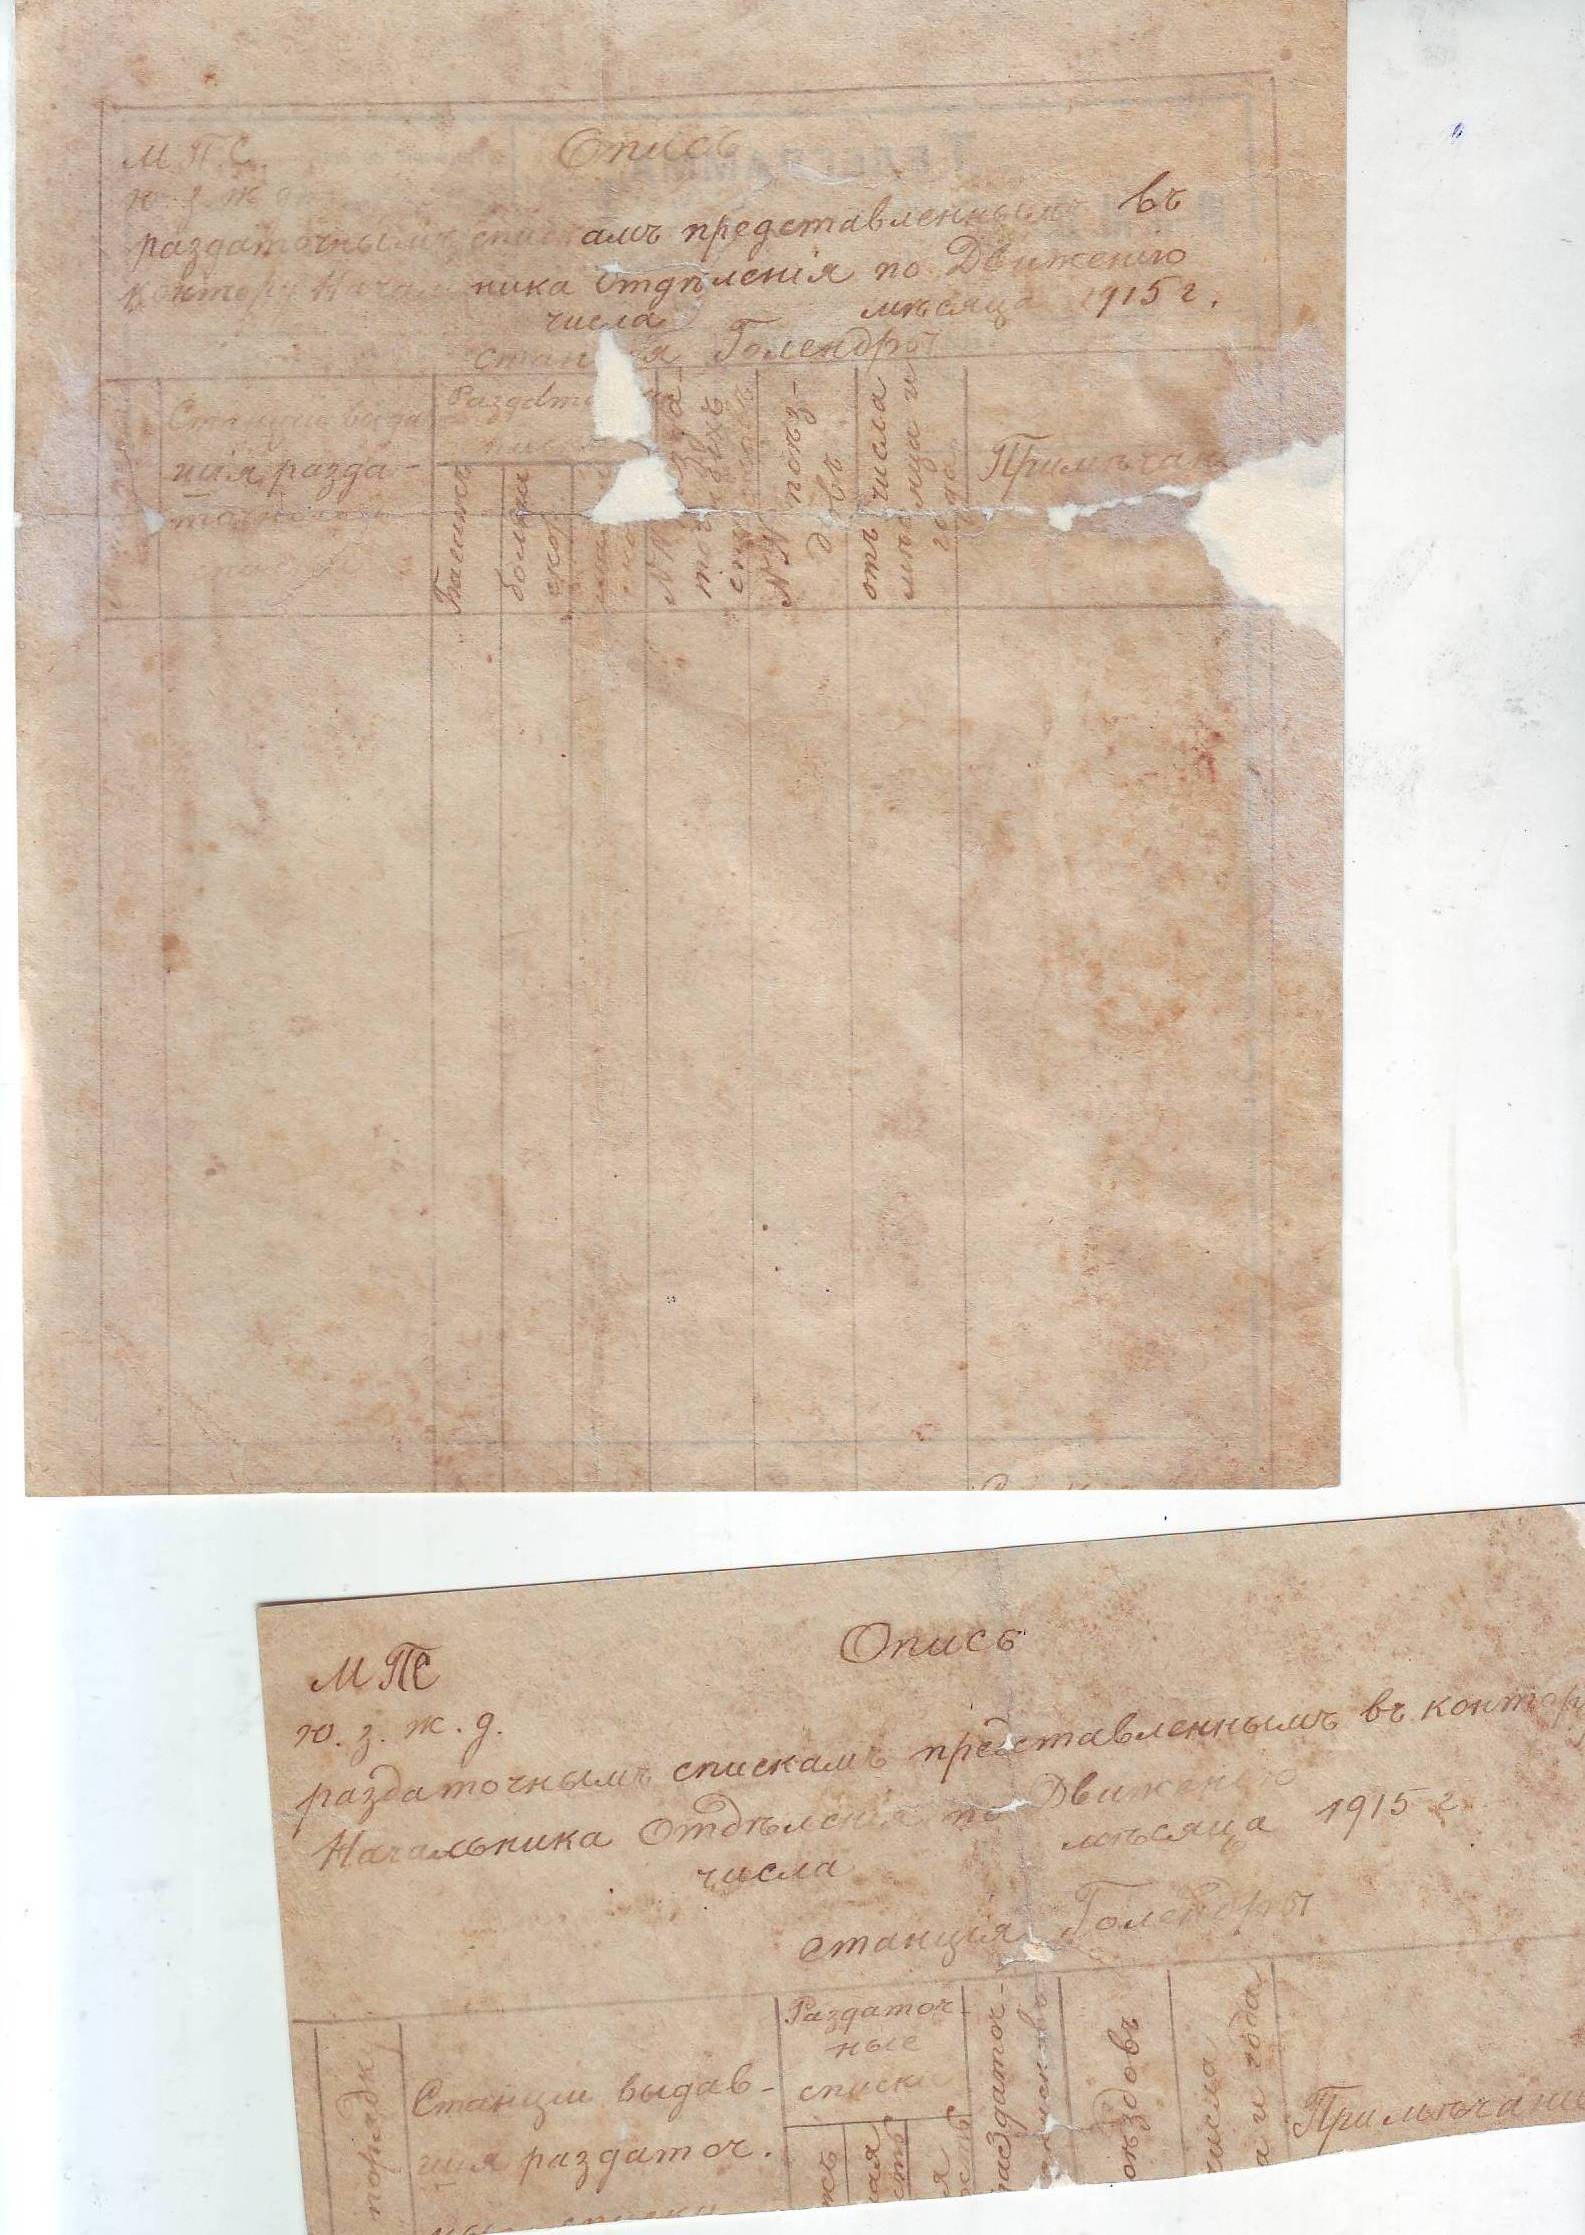 М.П.С.
Опись
ю з ж
раздаточнымъ спискамъ представленнымъ въ
контору Начальника Отдѣленія по Движенію
числа мѣсяца 1915 г.
станція Голендры
Станціи выдав
шія разда-
точные
Раздато
Багажъ
большая
скор.
№№ разда-
точныхъ
списковъ
№№ поѣз-
довъ
отъ числа
мѣсяца и
года
Примѣчан
Опись
МПС
ю. з. ж. д.
раздаточнымъ спискамъ представленнымъ въ контору
Начальника Отдѣленія по Движенію
числа мѣсяца 1915 г
станція Голендры
порядку
Станціи выдав-
шія раздаточ.
ные списки
Раздаточ-
ные
списки
жъ
ая
сть
я
ость
раздаточ-
списковъ
оѣздовъ
числа
а и года
Примѣчаніе